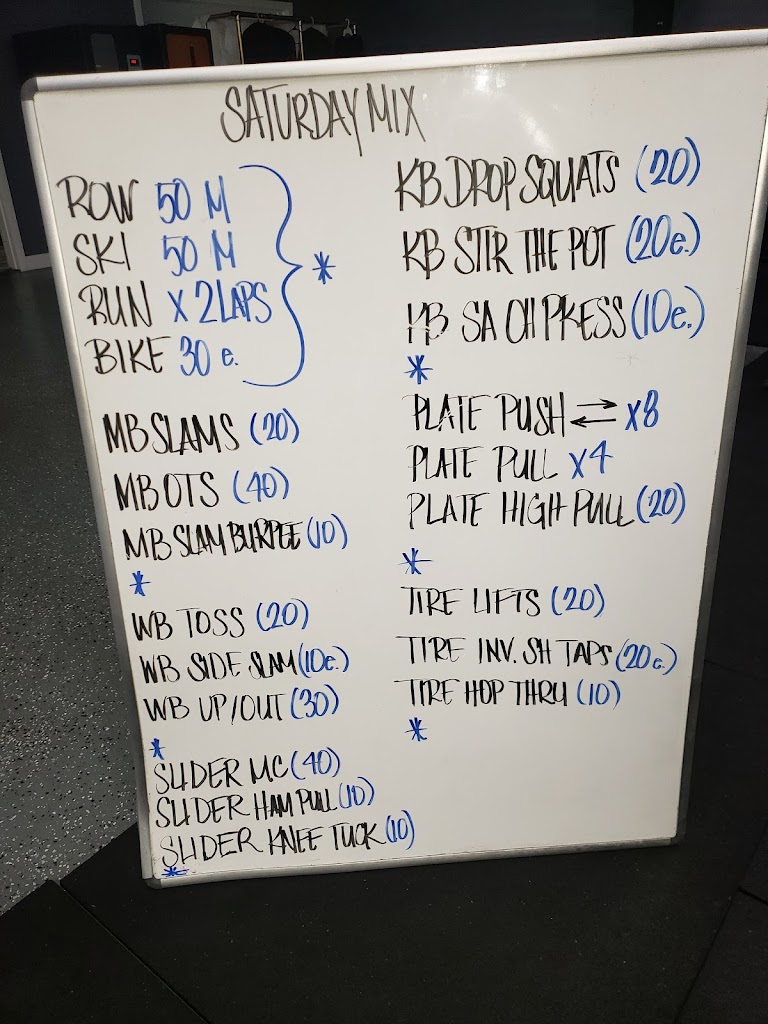 SATURDAY MIX
ROW 50 M
SKI 50 M
RUN X 2 LAPS
BIKE 30 e.
*
MB SLAMS (20)
MB OTS (40)
MB SLAM BURPEE (10)
*
WB TOSS (20)
WB SIDE SLAM (10e.)
WB UP/OUT (30)
*
SLIDER MC (40)
SLIDER HAM PULL (10)
SLIDER KNEE TUCK (10)
*
KB DROP SQUATS (20)
KB STIR THE POT (20e.)
KB SA CH PRESS (10e.)
*
PLATE PUSH ⇄ X8
PLATE PULL X4
PLATE HIGH PULL (20)
*
TIRE LIFTS (20)
TIRE INV. SH TAPS (20e.)
TIRE HOP THRU (10)
*